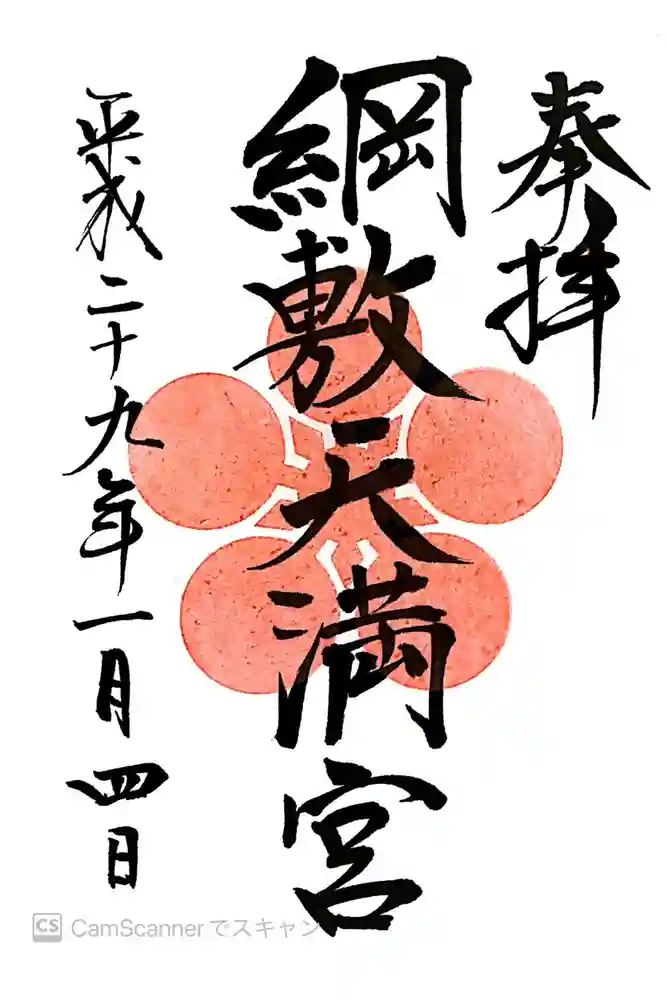 奉拝
綱敷天満宮
平成二十九年一月四日
CS CamScannerでスキャン